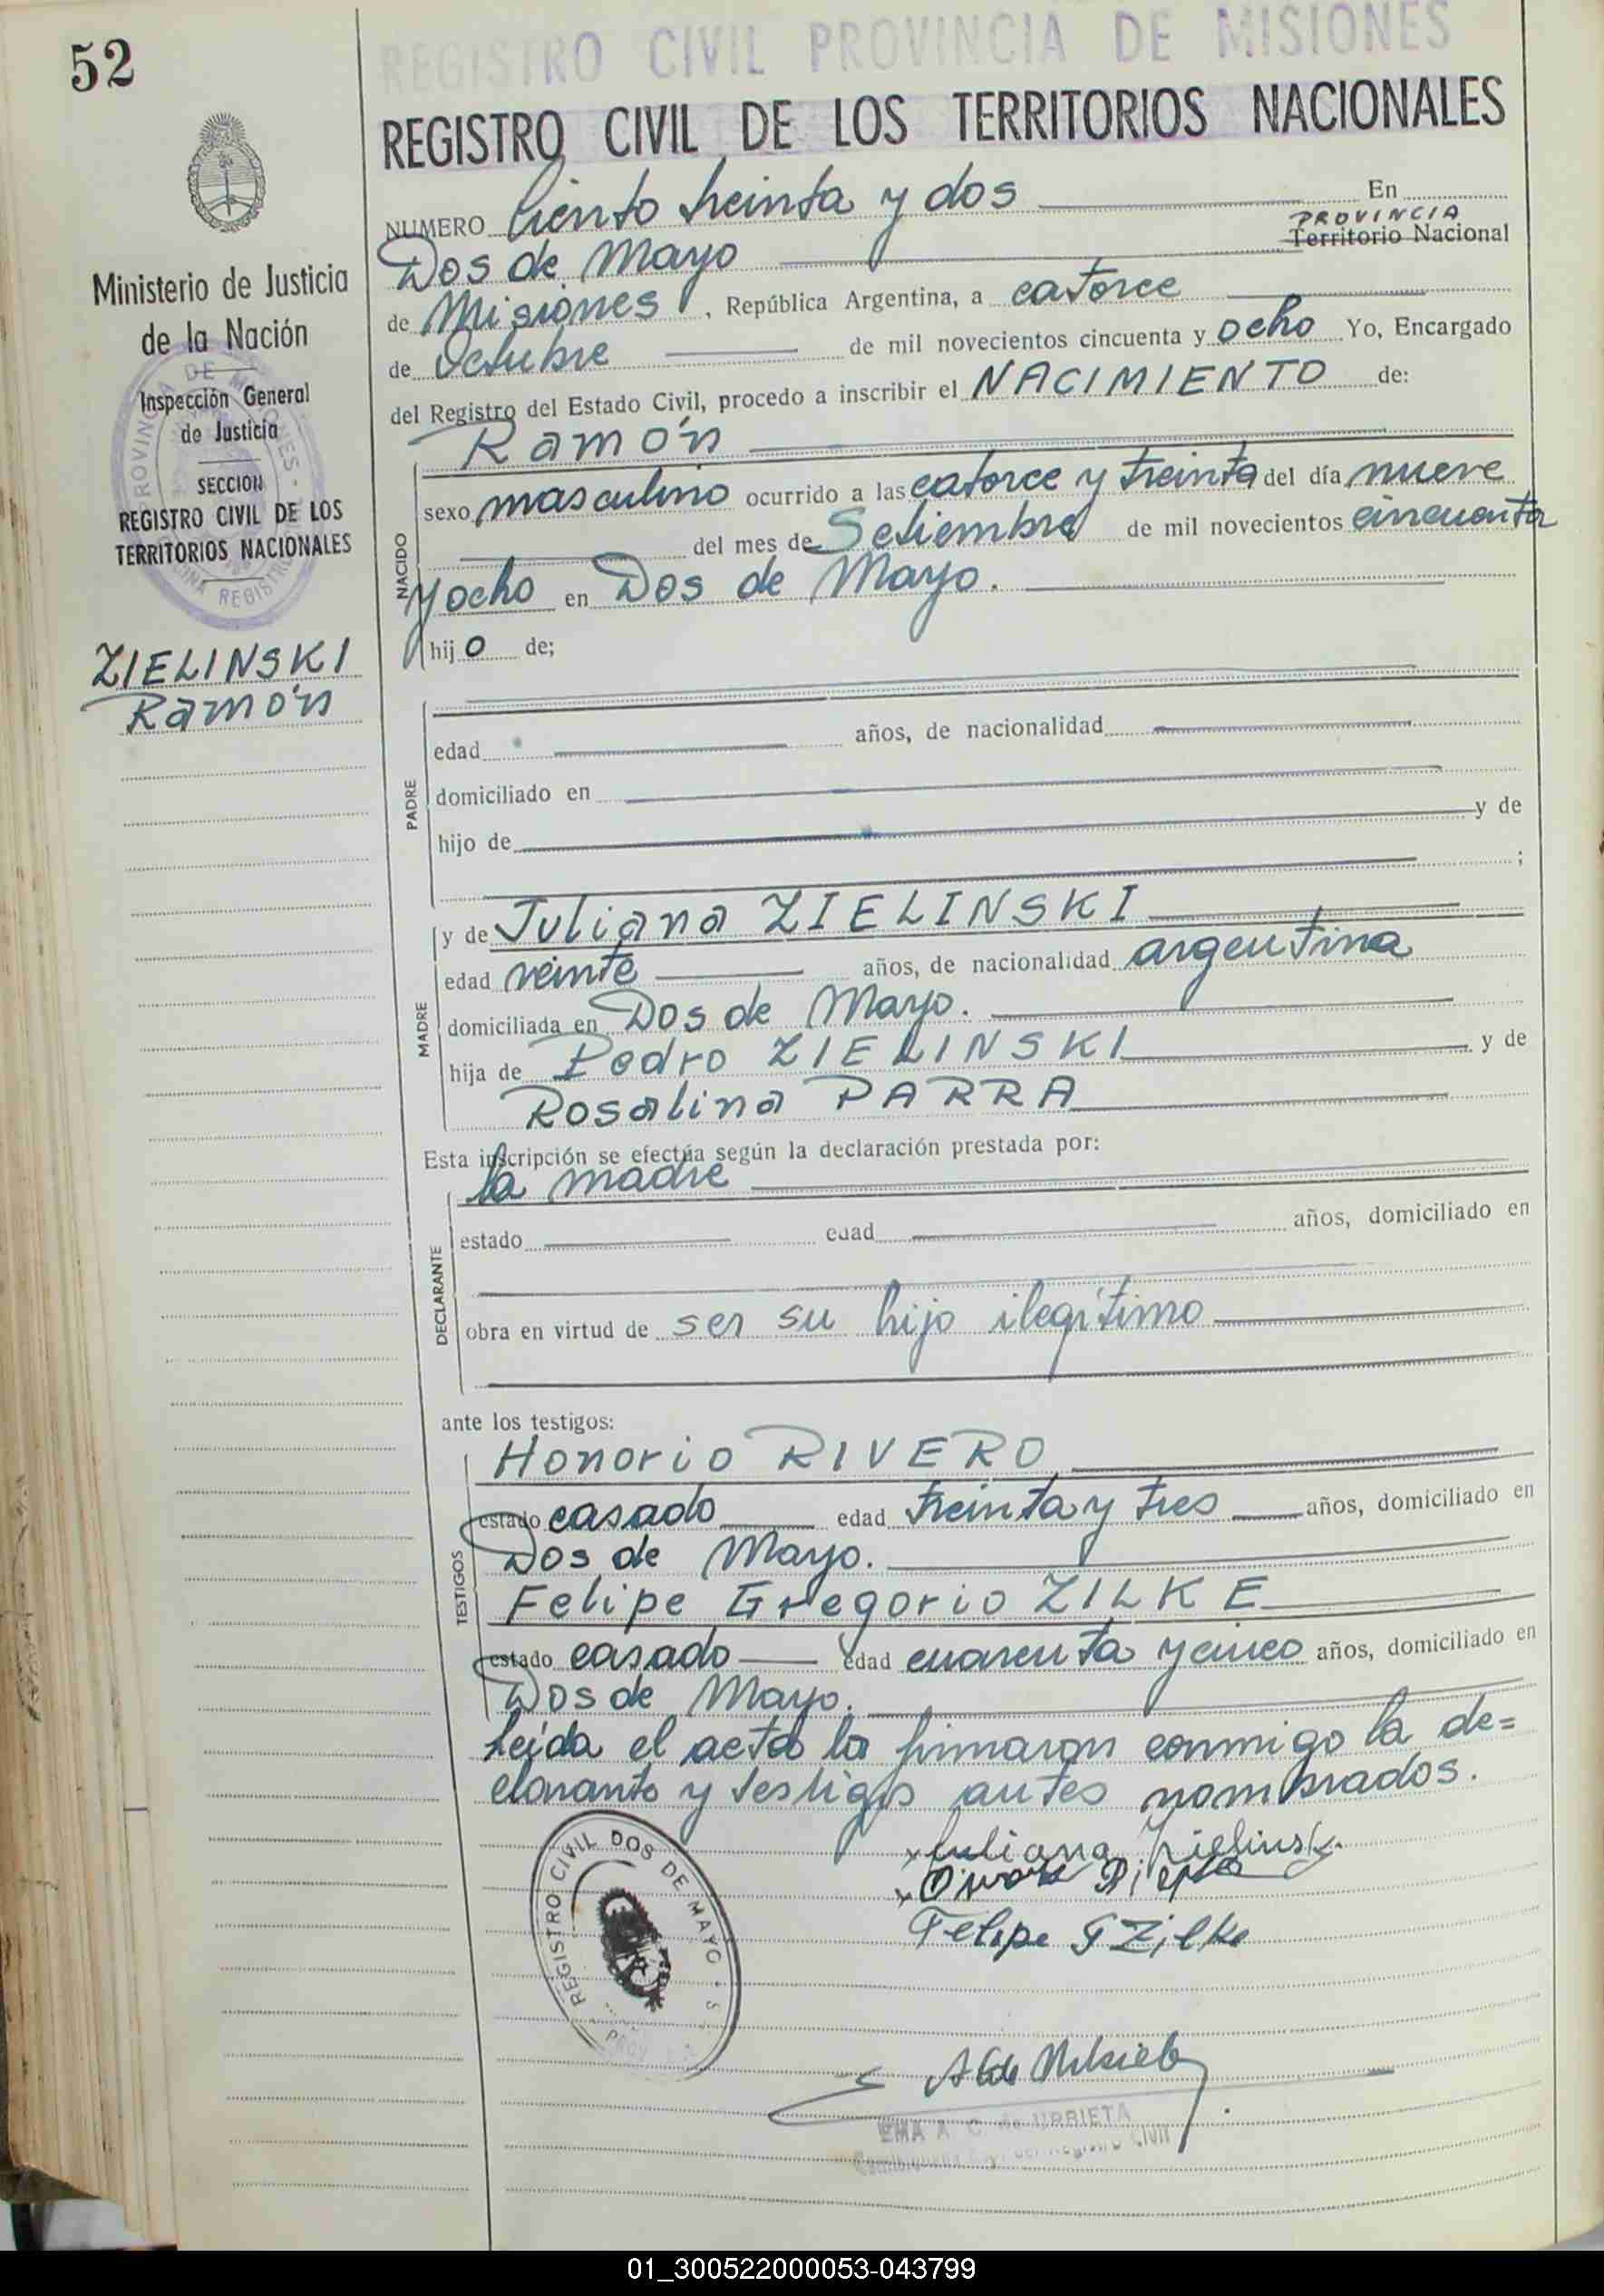 52
REGISTRO CIVIL PROVINCIA DE MISIONES
REGISTRO CIVIL DE LOS TERRITORIOS NACIONALES
Ministerio de Justicia
de la Nación
Inspección General
de Justicia
SECCION
REGISTRO CIVIL DE LOS
TERRITORIOS NACIONALES
ZIELINSKI
Ramón
NUMERO Ciento treinta y dos En
Dos de Mayo PROVINCIA Territorio Nacional
de Misiones, República Argentina, a catorce
de Octubre de mil novecientos cincuenta y ocho Yo, Encargado
del Registro del Estado Civil, procedo a inscribir el NACIMIENTO de:
Ramón
NACIDO
sexo masculino ocurrido a las catorce y treinta del día nueve
del mes de Setiembre de mil novecientos cincuenta
y ocho en Dos de Mayo.
hijo de;
PADRE
edad años, de nacionalidad
domiciliado en
hijo de y de
;
MADRE
y de Juliana ZIELINSKI
edad veinte años, de nacionalidad argentina
domiciliada en Dos de Mayo.
hija de Pedro ZIELINSKI y de
Rosalina PARRA
Esta inscripción se efectúa según la declaración prestada por:
la madre
DECLARANTE
estado edad años, domiciliado en
obra en virtud de ser su hijo ilegítimo
ante los testigos:
TESTIGOS
Honorio RIVERO
estado casado edad treinta y tres años, domiciliado en
Dos de Mayo.
Felipe Gregorio ZILKE
estado casado edad cuarenta y cinco años, domiciliado en
Dos de Mayo.
Leída el acta la firmaron conmigo la de=
clarante y testigos antes nombrados.
Juliana Zielinski
Felipe G Zilke
REGISTRO CIVIL DOS DE MAYO
EMA A. C. de URRIETA
01_300522000053-043799